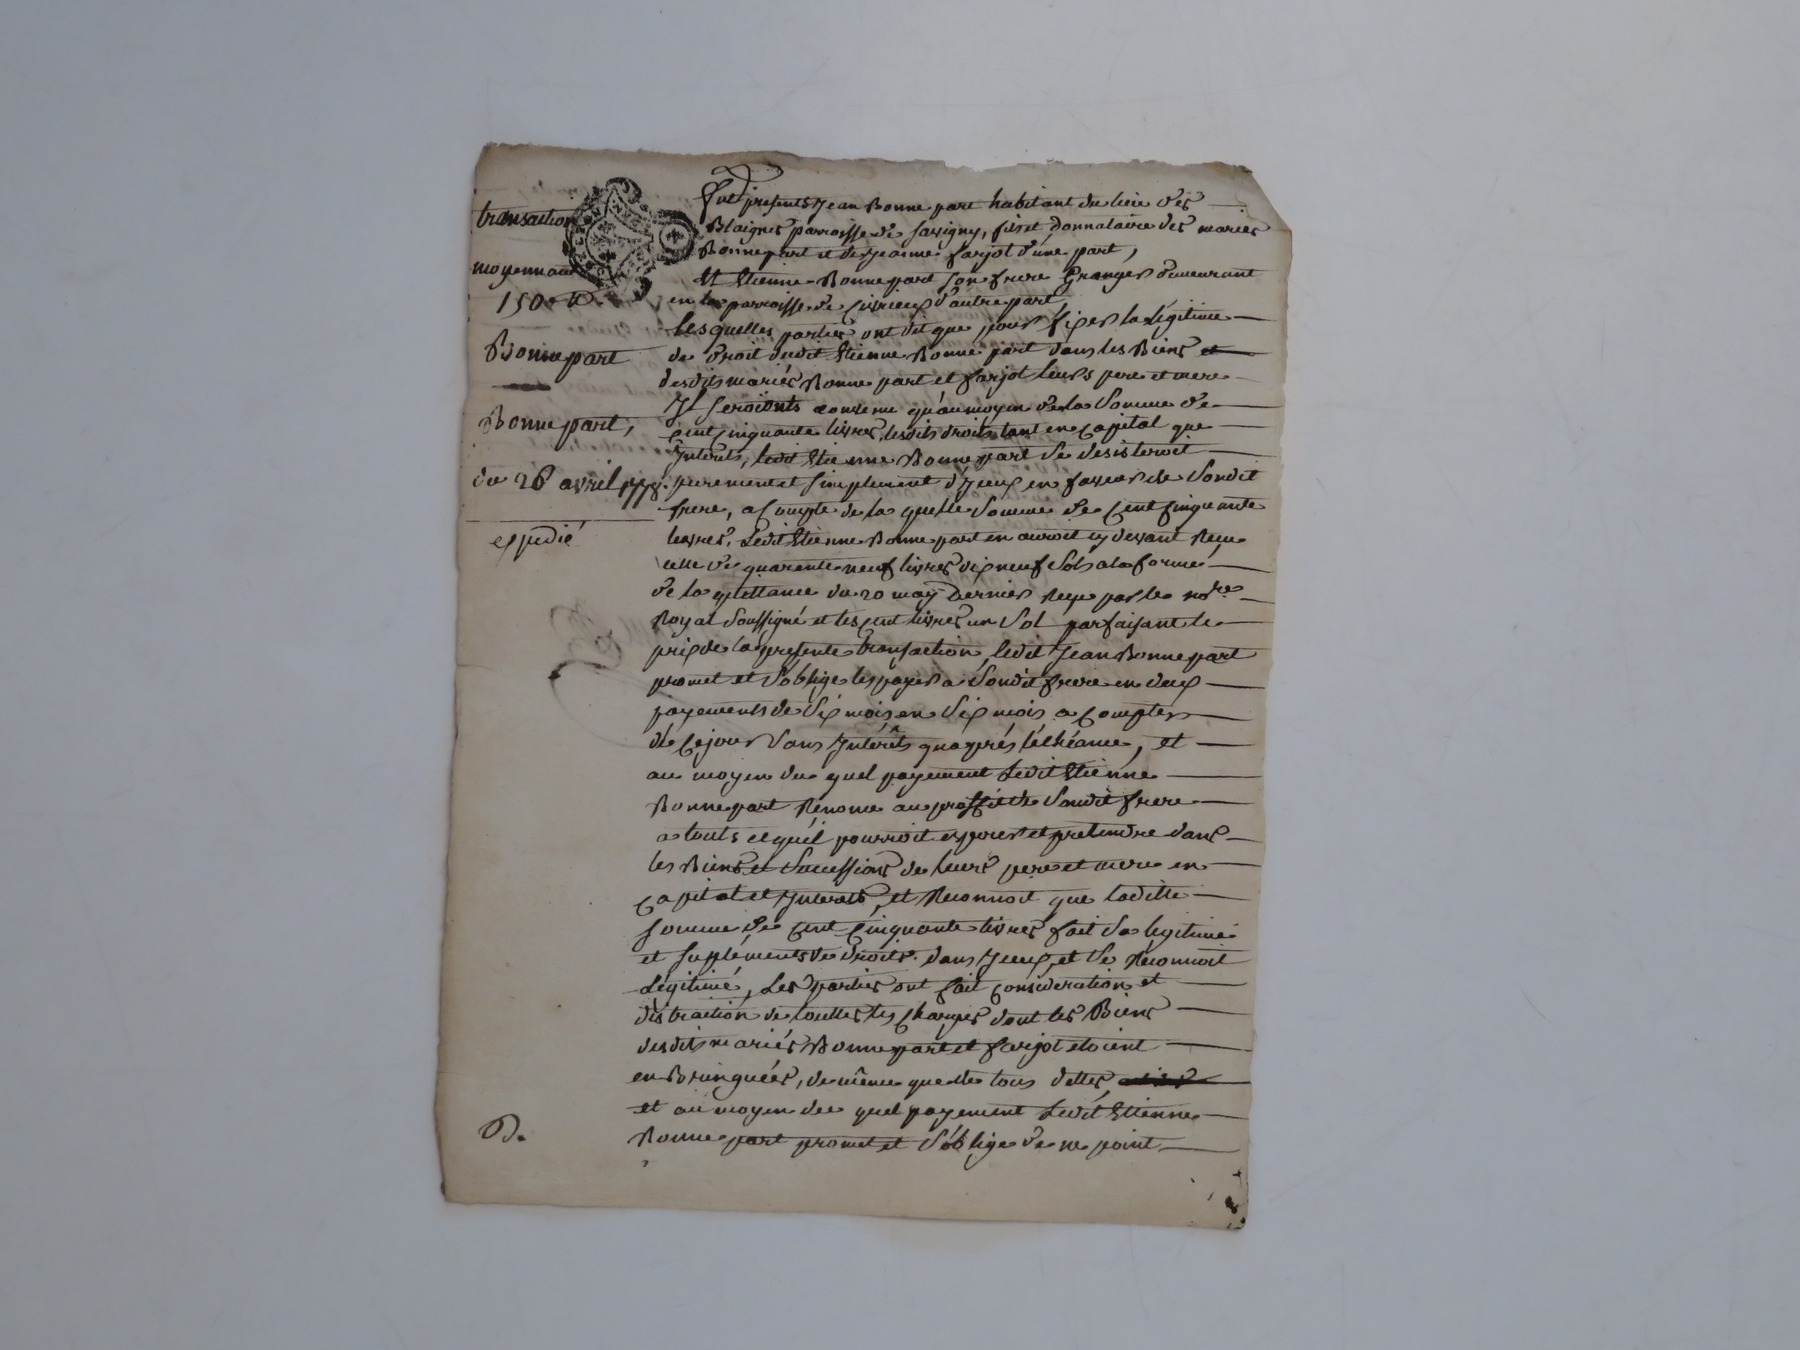 transaction
moyennant
150 #
Bonnepart
Bonnepart,
du 26 avril 1778.
expedié
Furent presents Jean Bonnepart habitant du lieu des
Blaignes parroisse de Savigny, fils et donnataire des mariés
Bonnepart et de Jeanne farjot d'une part,
Et Etienne Bonnepart son frere Granger demeurant
en la parroisse de Civrieux d'autre part,
Lesquelles parties ont dit que pour fixer la légitime
de droit dudit Etienne Bonnepart dans les Biens et
desdits mariés Bonnepart et farjot leurs pere et mere
Il seroionts convenu qu'au moyen de la Somme de
Cent Cinquante livres, lesdits droits tant en Capital que
Interets, ledit Etienne Bonnepart Se desisteroit
purement et simplement d'Iceux en faveur de Sondit
frere, a Compte de la quelle Somme de Cent Cinquante
livres, Ledit Etienne Bonnepart en auroit cy devant Reçu
celle de quarente neuf livres dix neuf Sols a la forme
de la quittance du 20 may dernier Reçue par le notre
Royal Soussigné et les cent livres un Sol parfaisant le
prix de la presente transaction, ledit Jean Bonnepart
promet et S'oblige les payer a Sondit frere en deux
payements de Six mois en Six mois a Compter
de Cejour Sans Intérêts qu'aprés l'échéance, et
au moyen du quel payement Ledit Etienne
Bonnepart Renonce au proffit de Sondit frere
a touts ce qu'il pourroit esperer et pretendre dans
les Biens et Sucessions de leurs pere et mere en
Capital et Interets, et Reconnoit que laditte
Somme de Cent Cinquante livres fait Sa legitime
et supléments de droits dans Iceux, et Se Reconnoit
Légitimé, Les parties ont fait Consideration et
distraction de touttes les Charges dont les Biens
desdits mariés Bonnepart et farjot etoient
de même que de tous dettes,
et au moyen du quel payement Ledit Etienne
Bonnepart promet et S'oblige de ne point